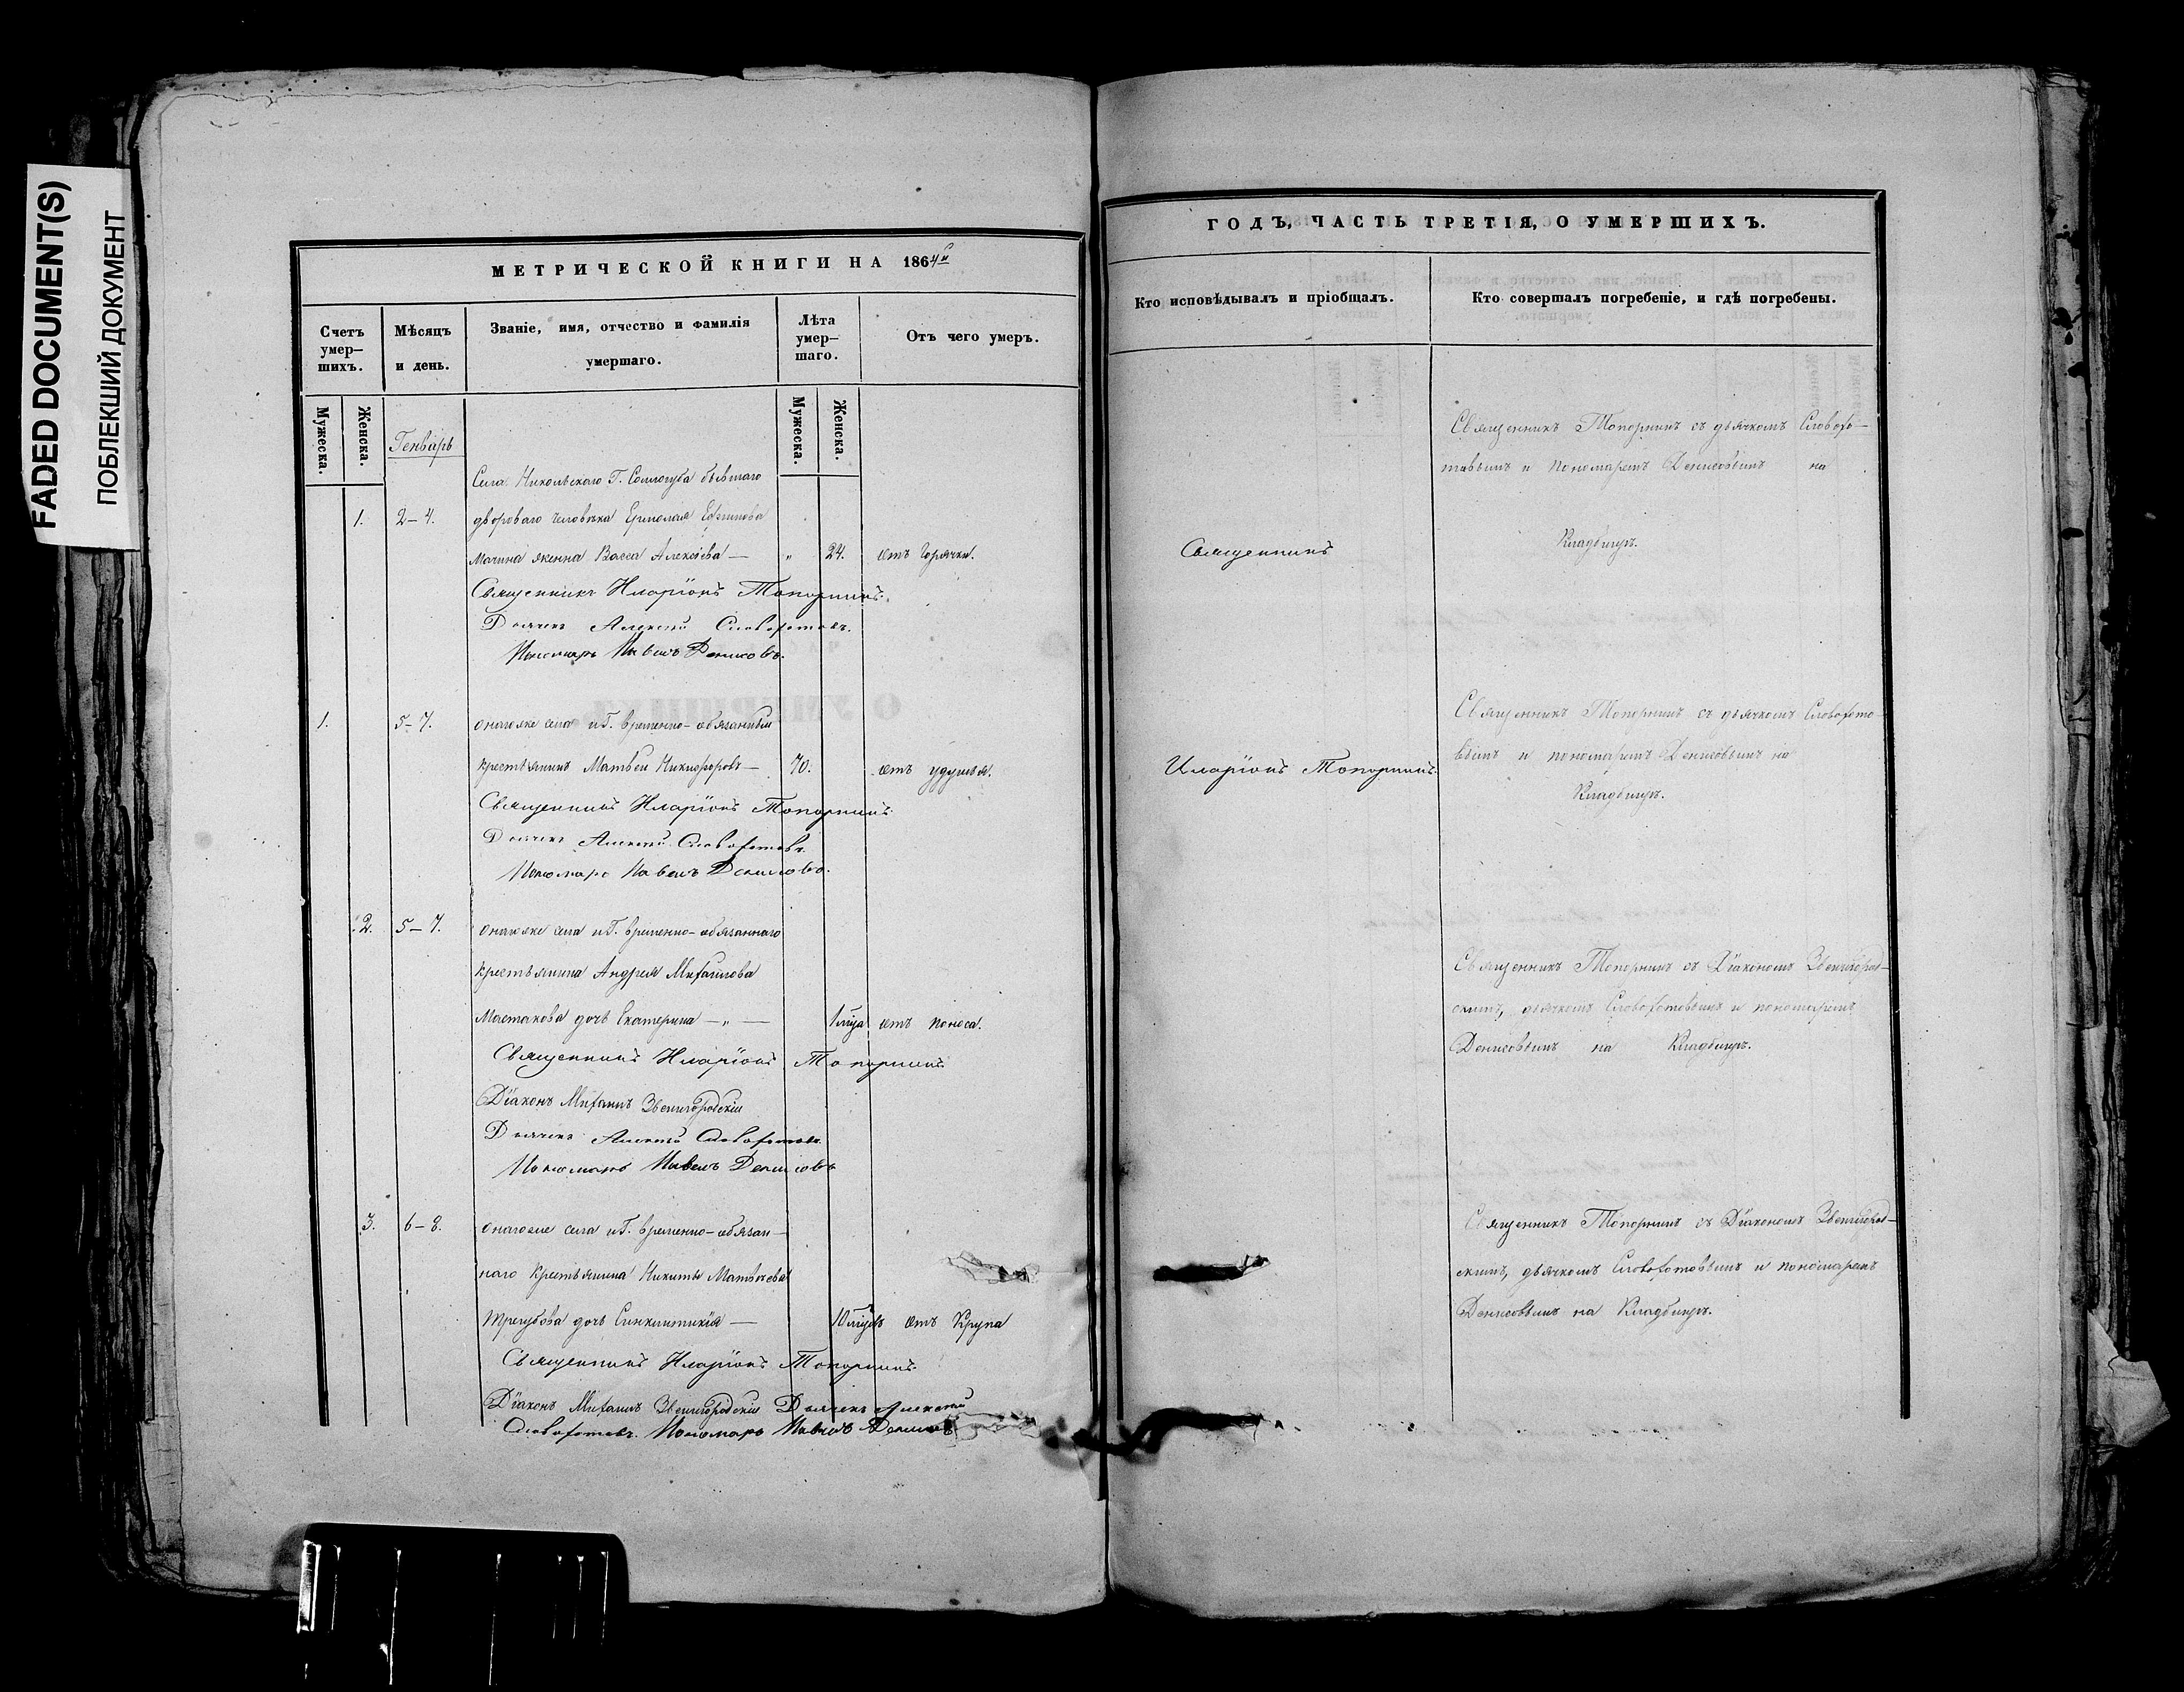 FADED DOCUMENT(S)
ПОБЛЕКШИЙ ДОКУМЕНТ
МЕТРИЧЕСКОЙ КНИГИ НА 1864й
Счетъ умер–шихъ.
Мѣсяцъ и день.
Званіе, имя, отчество и фамилія умершаго.
Лѣта умер–шаго.
Отъ чего умеръ.
Мужеска.
Женска.
Генварь
Мужеска.
Женска.
Села Никольскаго Г. Соллогуба бывшаго
1. 2–4. двороваго человѣка Ермолая Ефимова
жена Васса Алексѣева — „ 24. отъ горячки.
Священникъ Иларіонъ Топорнинъ.
Дьячекъ Алексѣй Словохотовъ.
Пономарь Павелъ Денисовъ.
1. 5–7. онагоже села и Г. временно–обязанный
крестьянинъ Матвѣй Никифоровъ — 70. отъ удушья.
Священникъ Иларіонъ Топорнинъ.
Дьячекъ Алексѣй Словохотовъ.
Пономарь Павелъ Денисовъ.
2. 5–7. онагоже села и Г. временно–обязаннаго
крестьянина Андрея Михайлова
дочь Екатерина — „ — отъ поноса.
Священникъ Иларіонъ Топорнинъ
Діаконъ Михаилъ Звенигородскій
Дьячекъ Алексѣй Словохотовъ.
Пономарь Павелъ Денисовъ
3. 6–8. онагоже села и Г. временно–обязан–
наго крестьянина Никиты Матвѣева
дочь Синклитикія — отъ крупа
Священникъ Иларіонъ Топорнинъ.
Діаконъ Михаилъ Звенигородскій Дьячекъ Алексѣй
Словохотовъ. Пономарь Павелъ Денисовъ
ГОДЪ, ЧАСТЬ ТРЕТІЯ, О УМЕРШИХЪ.
Кто исповѣдывалъ и пріобщалъ.
Кто совершалъ погребеніе, и гдѣ погребены.
Священникъ
Иларіонъ Топорнинъ.
Священникъ Топорнинъ съ дьячкомъ Словохо–
товымъ и пономаремъ Денисовымъ на
Кладбищѣ.
Священникъ Топорнинъ съ дьячкомъ Словохото–
вымъ и пономаремъ Денисовымъ на
Кладбищѣ.
Священникъ Топорнинъ съ Діакономъ Звенигород–
скимъ, дьячкомъ Словохотовымъ и пономаремъ
Денисовымъ на Кладбищѣ.
Священникъ Топорнинъ съ Діакономъ Звенигород–
скимъ, дьячкомъ Словохотовымъ и пономаремъ
Денисовымъ на Кладбищѣ.